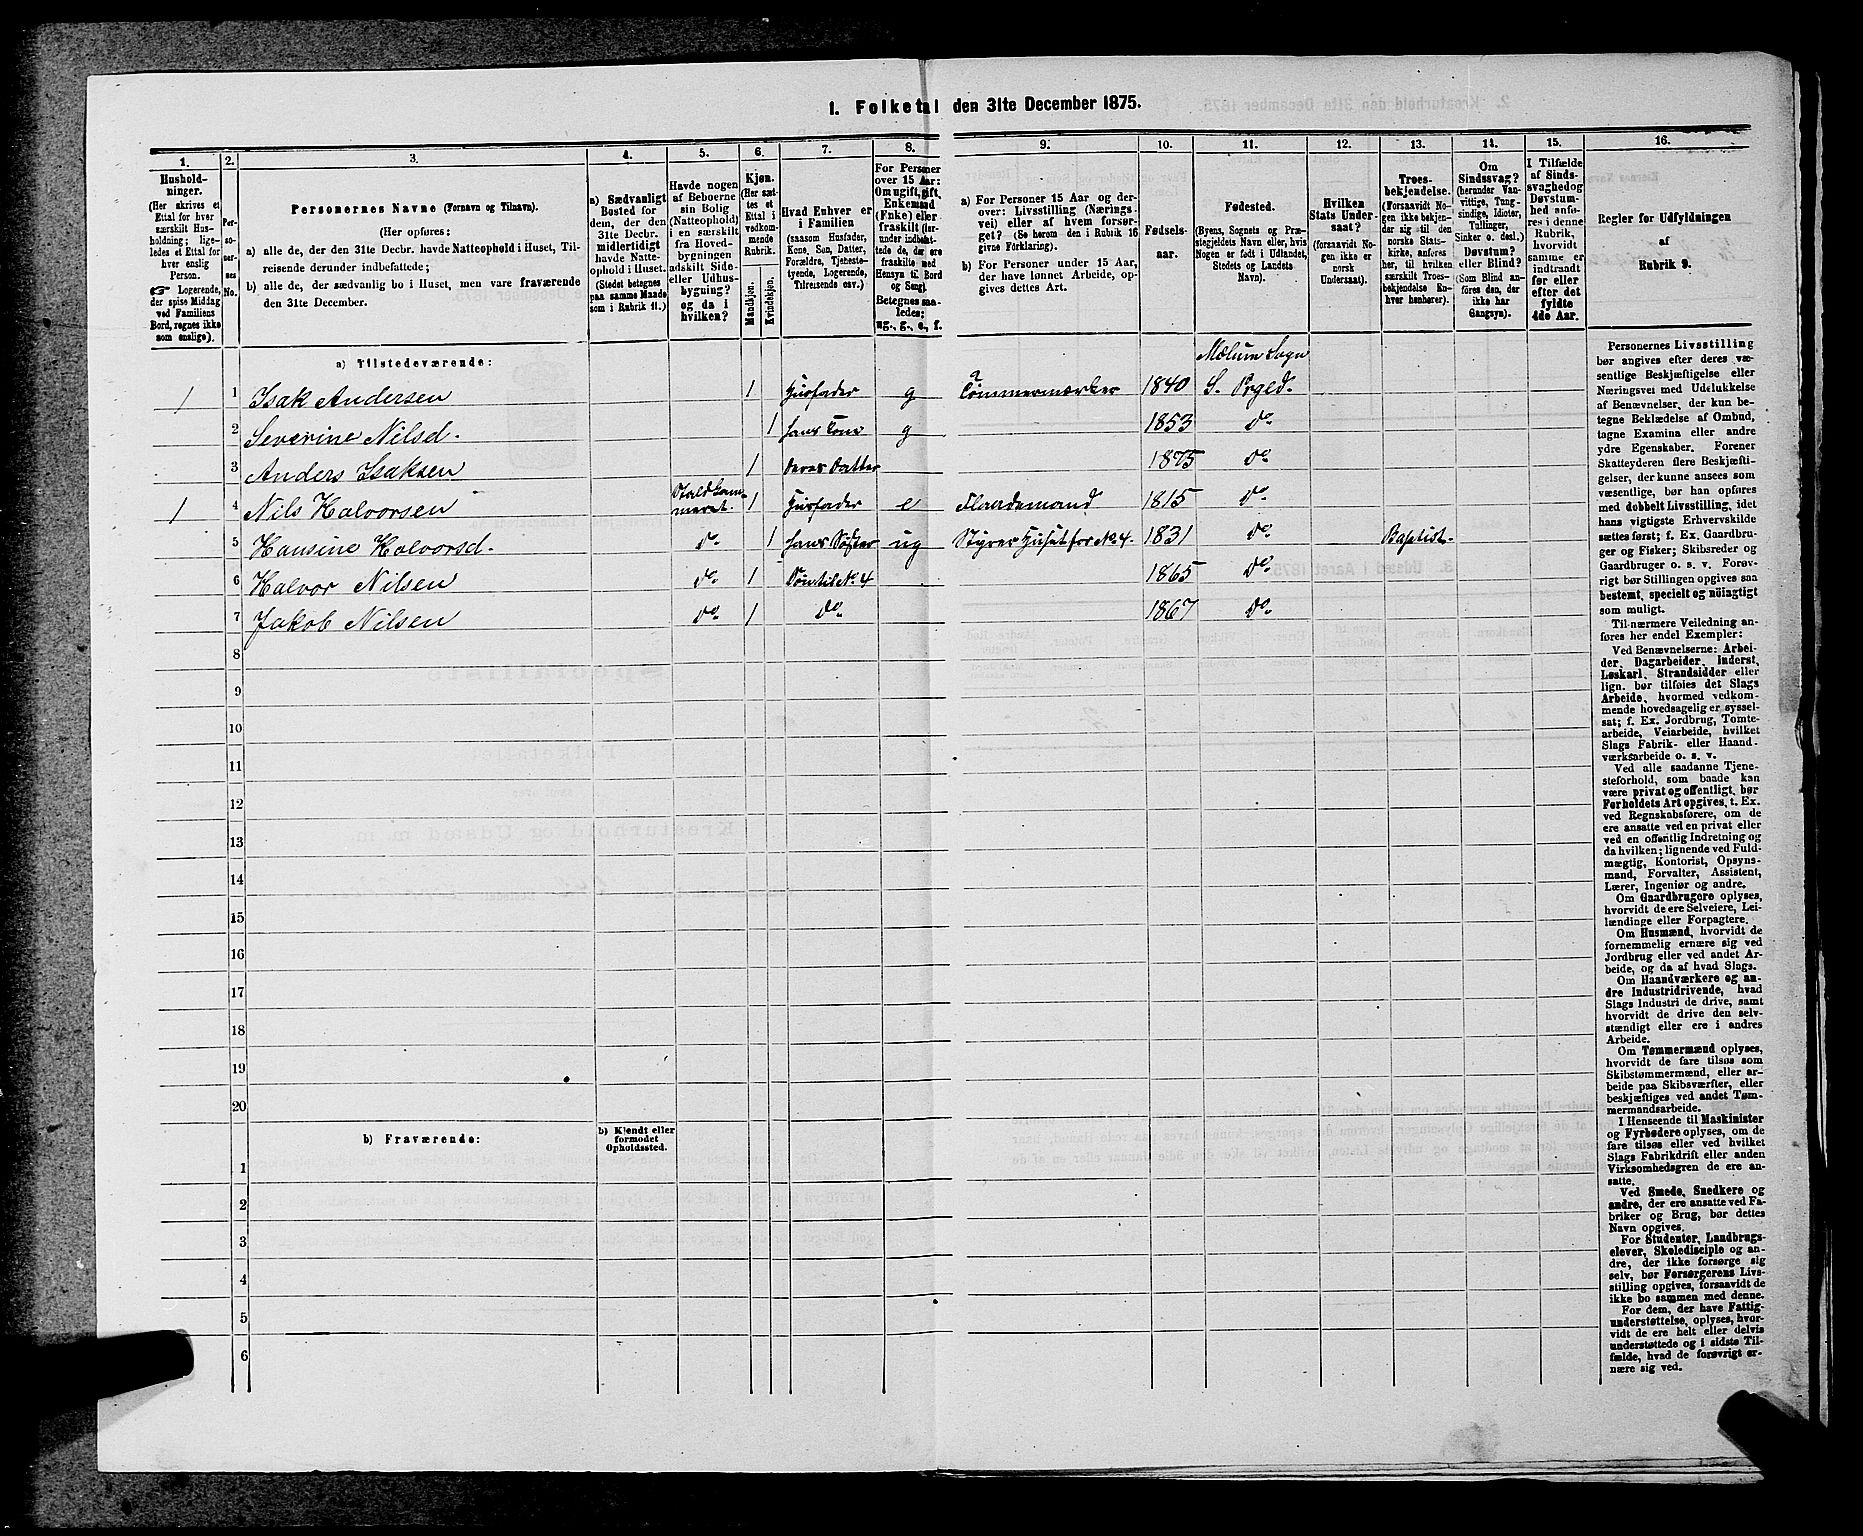 1. Folketal den 31te December 1875.
1. 2. 3. 4. 5. 6. 7. 8. 9. 10. 11. 12. 13. 14. 15. 16.
Hushold-
ninger.
(Her skrives et
Ettal for hver
særskilt Hus-
holdning; lige-
ledes et Ettal for
hver enslig
Person.
☞ Logerende,
der spise Middag
ved Familiens
Bord, regnes ikke
som enslige).
Per-
so-
ner-
nes
No.
Personernes Navne (Fornavn og Tilnavn).
(Her opføres:
a) alle de, der den 31te Decbr. havde Natteophold i Huset, Til-
reisende derunder indbefattede;
b) alle de, der sædvanlig bo i Huset, men vare fraværende
den 31te December.
a) Sædvanligt
Bosted for
dem, der den
31te Decbr.
midlertidigt
havde Natte-
ophold i Huset.
(Stedet betegnes
paa samme Maade
som i Rubrik 11.)
Havde nogen
af Beboerne
sin Bolig
(Natteophold)
i en særskilt
fra Hoved-
bygningen
adskilt Side-
eller Udhus-
bygning?
og da i
hvilken?
Kjøn.
(Her sæt-
tes et
Ettal i
vedkom-
mende
Rubrik.
Mandkjøn.
Kvindekjøn.
Hvad Enhver er
i Familien
(saasom Husfader,
Kone, Søn, Datter,
Forældre, Tjeneste-
tyende, Logerende,
Tilreisende osv.)
For Personer
over 15 Aar:
Om ugift, gift,
Enkemand
(Enke) eller
fraskilt (der-
under indbefat-
tede de, der ere
fraskilte med
Hensyn til Bord
og Seng).
Betegnes saa-
ledes:
ug., g., e., f.
a) For Personer 15 Aar og der-
over: Livsstilling (Nærings-
vei) eller af hvem forsør-
get? (Se herom den i Rubrik 16
givne Forklaring).
b) For Personer under 15 Aar,
der have lønnet Arbeide, op-
gives dettes Art.
Fødsels-
aar.
Fødested.
(Byens, Sognets og Præ-
stegjeldets Navn eller, hvis
Nogen er født i Udlandet,
Stedets og Landets
Navn).
Hvilken
Stats Under-
saat?
(forsaavidt No-
gen ikke er
norsk
Undersaat).
Troes-
bekjendelse.
(Forsaavidt No-
gen ikke bekjen-
der sig til den
norske Stats-
kirke, anføres
her, til hvilken
særskilt Troes-
bekjendelse En-
hver henhører).
Om
Sindssvag?
(herunder Van-
vittige, Tung-
sindige, Idioter,
Tullinger,
Sinker o. desl.)
Døvstum?
eller Blind?
(Som Blind an-
føres den, der
ikke har
Gangsyn).
I Tilfælde
af Sinds-
svaghed og
Døvstum-
hed anfø-
res i denne
Rubrik,
hvorvidt
samme er
indtraadt
før eller
efter det
fyldte
4de Aar.
Regler for Udfyldningen
af
Rubrik 9.
a) Tilstedeværende:
Mælum Sogn
1 1 Isak Andersen 1 Husfader g Tømmermærker 1840 S. Prgld.
2 Severine Nilsd. 1 hans Kone g 1853 do
3 Anders Isaksen 1 Deres Datter 1875 do
1 4 Nils Halvorsen Staldkam-
meret. 1 Husfader e Flaademand 1815 do
5 Hansine Halvorsd. do 1 hans Søster ug Styrer Huset for No 4 1831 do Baptist.
6 Halvor Nilsen do 1 Søn til No 4 1865 do
7 Jakob Nilsen do 1 do 1867 do
8
9
10
11
12
13
14
15
16
17
18
19
20
b) Fraværende: b) Kjendt eller
formodet
Opholdssted.
1
2
3
4
5
6
Personernes Livsstilling
bør angives efter deres væ-
sentlige Beskjæftigelse eller
Næringsvei med Udelukkelse
af Benævnelser, der kun be-
tegne Beklædelse af Ombud,
tagne Examina eller andre
ydre Egenskaber. Forener
Skatteyderen flere Beskjæfti-
gelser, der kunne ansees som
væsentlige, bør han opføres
med dobbelt Livsstilling, idet
hans vigtigste Erhvervskilde
sættes først; f. Ex. Gaardbru-
ger og Fisker; Skibsreder og
Gaardbruger o. s. v. Forøv-
rigt bør Stillingen opgives saa
bestemt, specielt og nøiagtigt
som muligt.
Til nærmere Veiledning an-
føres her endel Exempler:
Ved Benævnelserne: Arbei-
der, Dagarbeider, Inderst,
Løskarl, Strandsidder eller
lign. bør tilføies det Slags
Arbeide, hvormed vedkom-
mende hovedsagelig er syssel-
sat; f. Ex. Jordbrug, Tomte-
arbeide, Veiarbeide, hvilket
Slags Fabrik- eller Haand-
værksarbeide o. s. v.
Ved alle saadanne Tjene-
steforhold, som baade kan
være privat og offentligt, bør
Forholdets Art opgives, t. Ex.
ved Regnskabsførere, om de
ere ansatte ved en privat eller
ved en offentlig Indretning og
da hvilken; lignende ved Fuld-
mægtig, Kontorist, Opsyns-
mand, Forvalter, Assistent,
Lærer, Ingeniør og andre.
Om Gaardbrugere oplyses,
hvorvidt de ere Selveiere, Lei-
lændinge eller Forpagtere.
Om Husmænd, hvorvidt de
fornemmelig ernære sig ved
Jordbrug eller ved andet Ar-
beide, og da af hvad Slags.
Om Haandværkere og an-
dre Industridrivende, hvad
Slags Industri de drive, samt
hvorvidt de drive den selv-
stændigt eller ere i andres
Arbeide.
Om Tømmermænd oplyses,
hvorvidt de fare tilsøs som
Skibstømmermænd, eller ar-
beide paa Skibsværfter, eller
beskjæftiges ved andet Tøm-
mermandsarbeide.
I Henseende til Maskinister
og Fyrbødere oplyses, om de
fare tilsøs eller ved hvilket
Slags Fabrikdrift eller anden
Virksomhedsgren de ere an-
satte.
Ved Smede, Snedkere og
andre, der ere ansatte ved Fa-
briker og Brug, bør dettes
Navn opgives.
For Studenter, Landbrugs-
elever, Skoledisciple og an-
dre, der ikke forsørge sig
selv, bør Forsørgerens Livs-
stilling opgives, forsaavidt de
ikke bo sammen med denne.
For dem, der have Fattig-
understøttelse, oplyses, hvor-
vidt de ere helt eller delvis
understøttede og i sidste Til-
fælde, hvad de forøvrigt er-
nære sig ved.